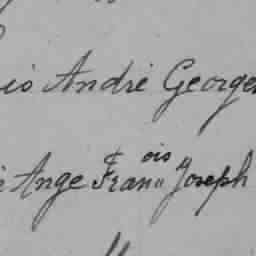 is André George
Ange Fran ois Joseph